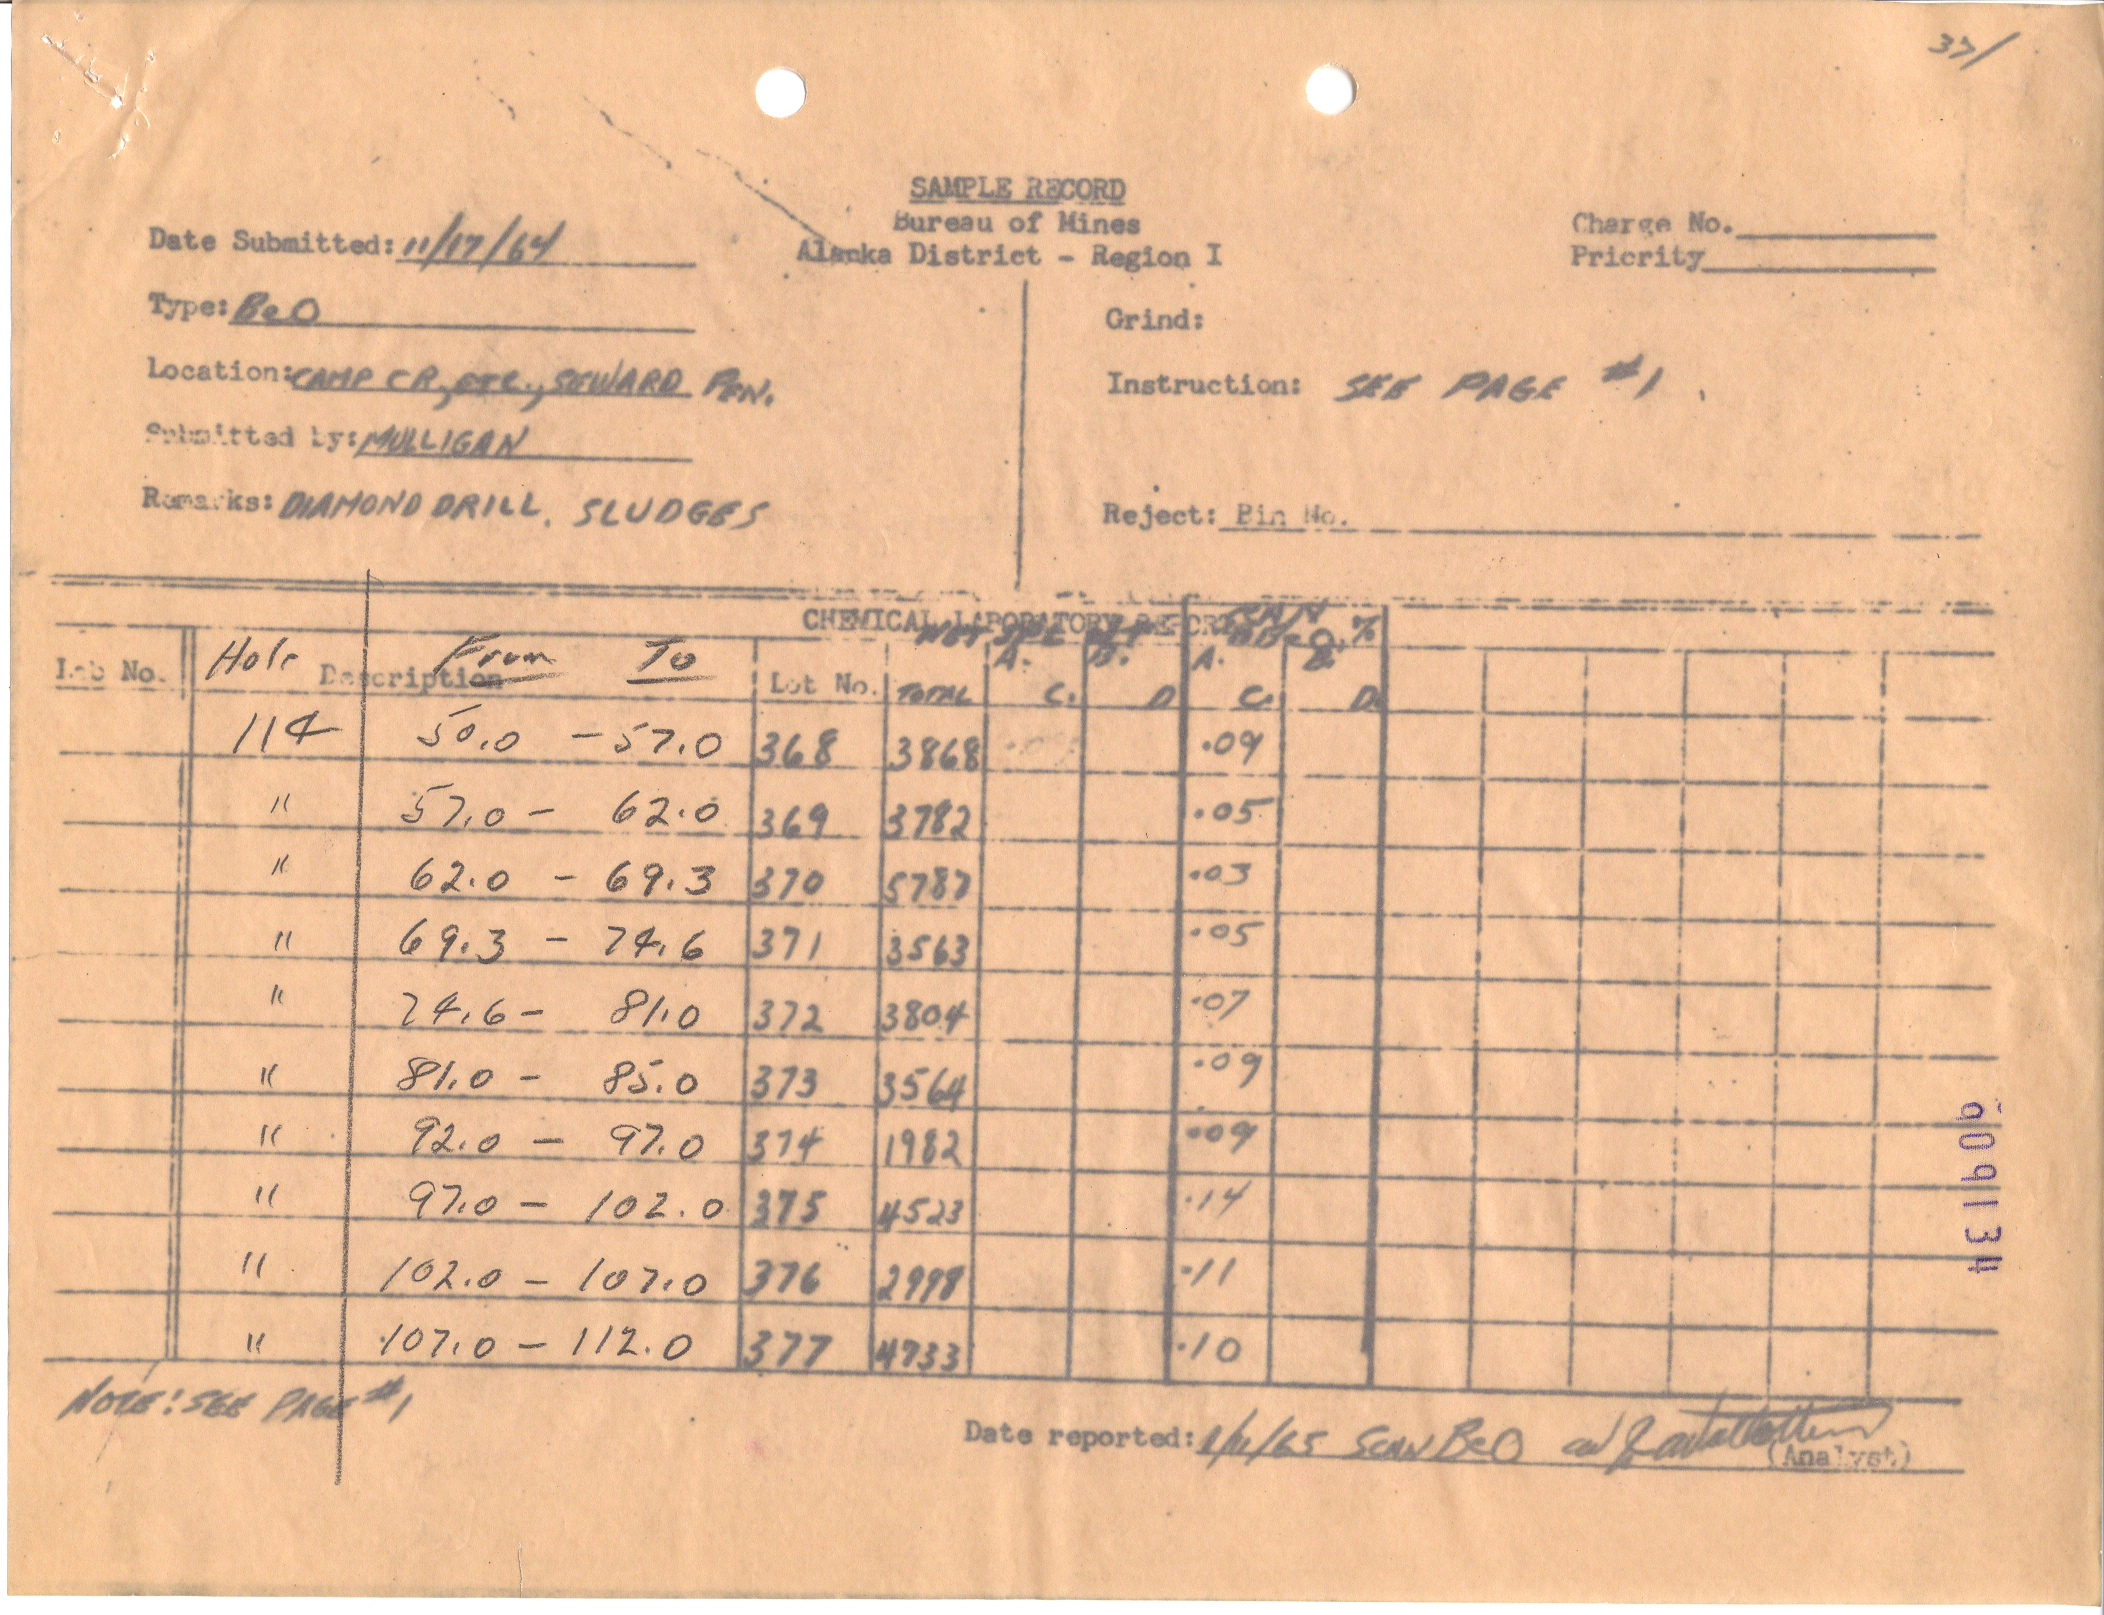 37/
SAMPLE RECORD
Bureau of Mines
Alaska District - Region I
Date Submitted: 11/17/64
Charge No.
Priority
Type: BeO
Grind:
Location: CAMP CR, ETC., SEWARD PEN.
Instruction: SEE PAGE #1.
Submitted by: MULLIGAN
Remarks: DIAMOND DRILL. SLUDGES
Reject: Bin No.
CHEMICAL LABORATORY REPORT
SCAN
BeO, %
Lab No. Hole Description From To Lot No. TOTAL A. B. A. B.
C. D C. D.
114 50.0 - 57.0 368 3868 .09
" 57.0 - 62.0 369 3782 .05
" 62.0 - 69.3 370 5787 .03
" 69.3 - 74.6 371 3563 .05
" 74.6 - 81.0 372 3804 .07
" 81.0 - 85.0 373 3564 .09
" 92.0 - 97.0 374 1982 .09
" 97.0 - 102.0 375 4523 .14
" 102.0 - 107.0 376 2998 .11
" 107.0 - 112.0 377 4733 .10
NOTE: SEE PAGE #1
Date reported: 1/11/65 SCAN BeO
(Analyst)